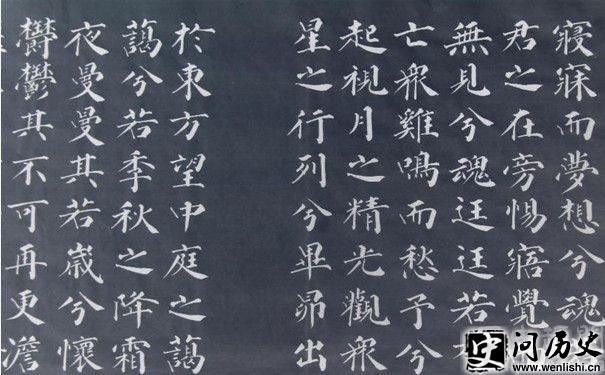 寢寐而夢想兮魂
君之在旁惕寤覺
無見兮魂迋迋若
亡衆雞鳴而愁予兮
起視月之精光觀衆
星之行列兮畢昴出
於東方望中庭之藹
藹兮若季秋之降霜
夜曼曼其若嵗兮懷
鬱鬱其不可再更澹
史 问历史
www.wenlishi.cn